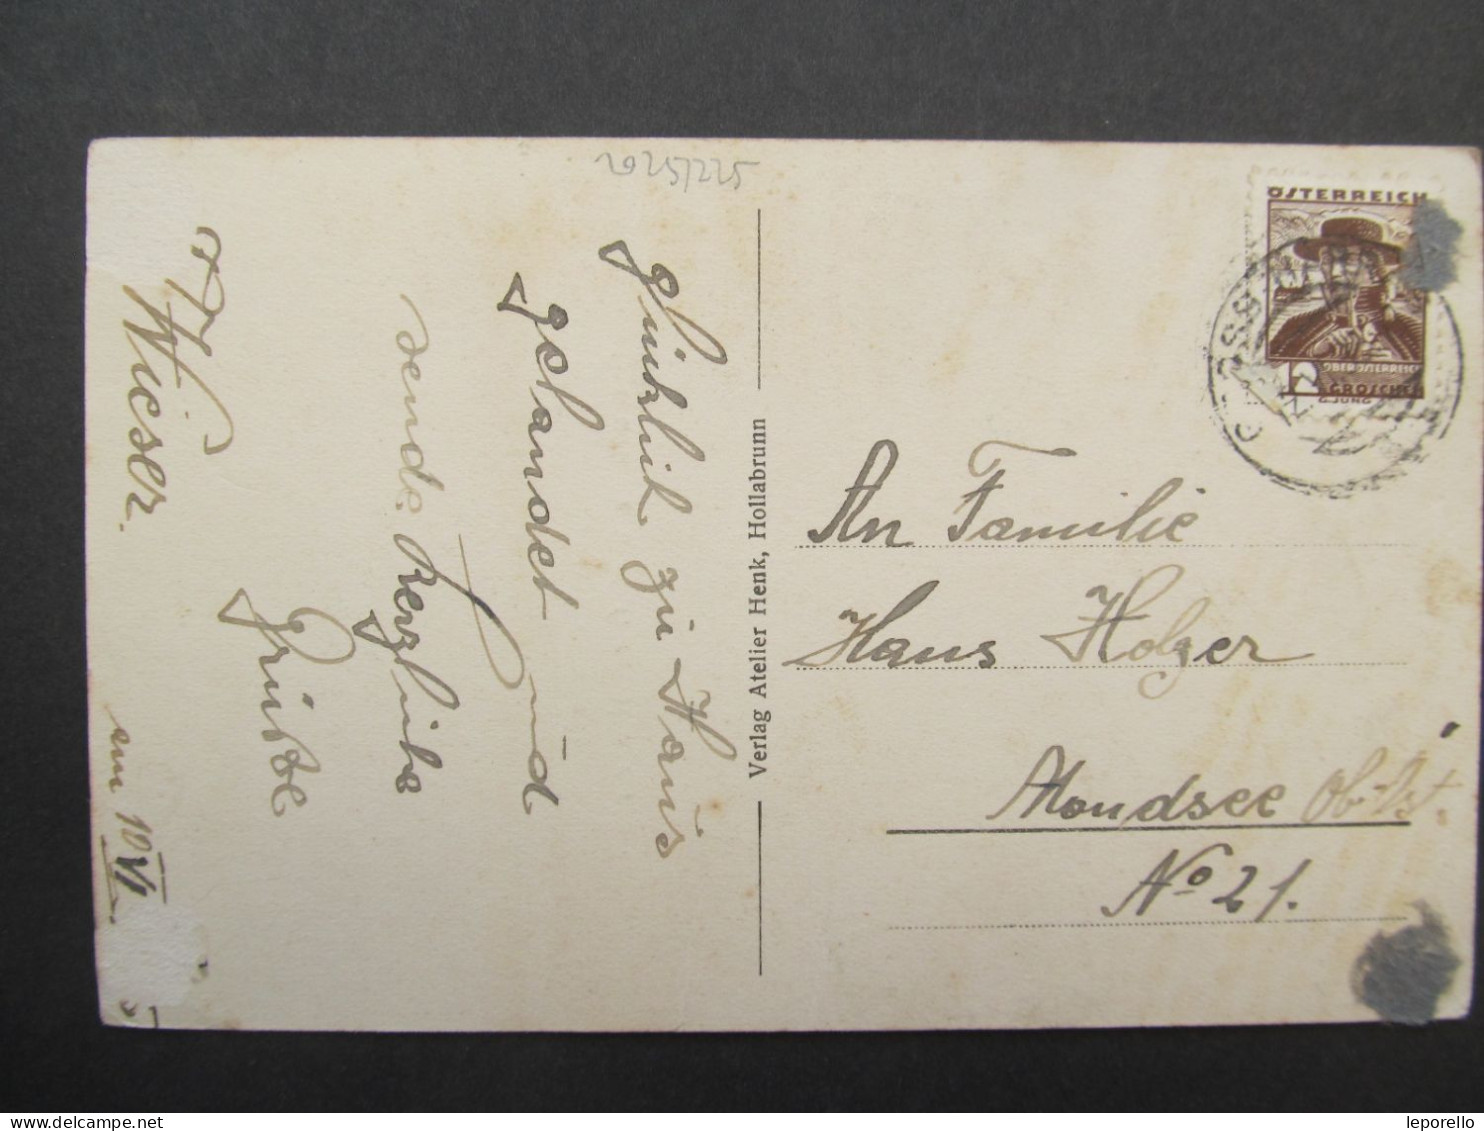 2025/225
glücklich zu Haus
gelandet und
sende herzliche
Grüße
Wieser.
am 10 VI.
Verlag Atelier Henk, Hollabrunn
ÖSTERREICH
12
OBERÖSTERREICH
GROSCHEN
G.JUNG
An Familie
Hans Holzer
Mondsee Ob. Öst.
No 21.
leporello